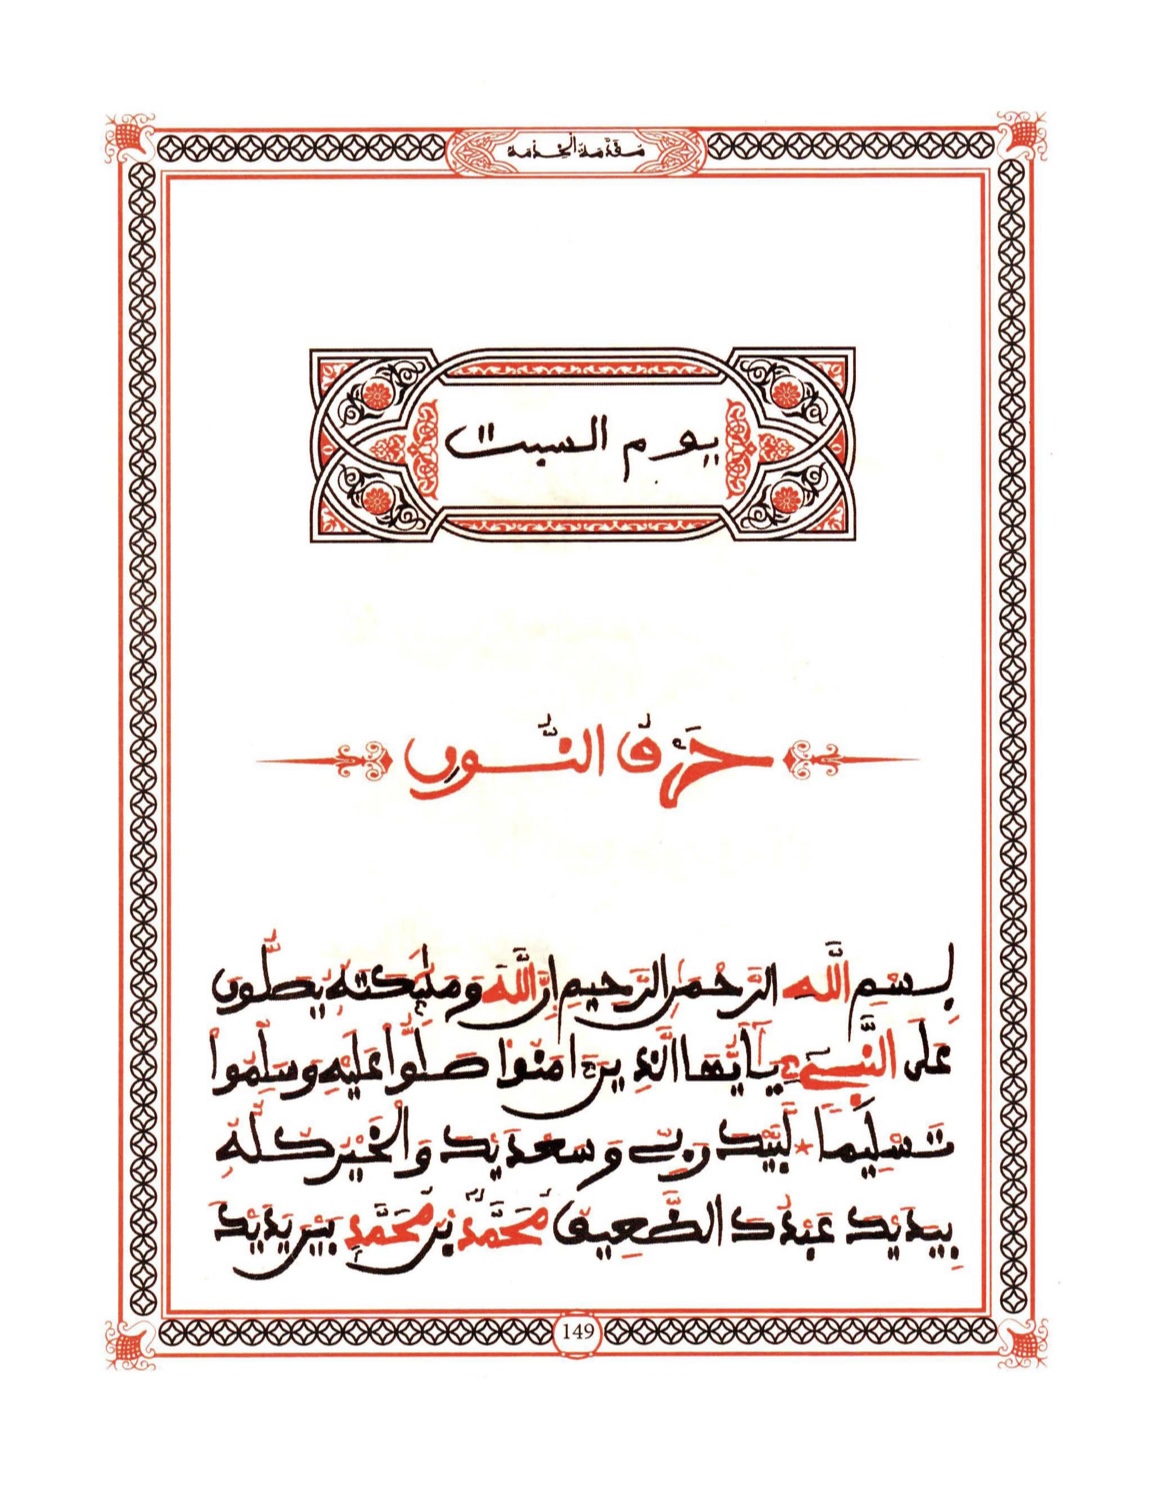 مقدمة الخدمة
يوم السبت
حَرْفُ النُّونِ
بِسْمِ اللَّهِ الرَّحْمَٰنِ الرَّحِيمِ إِنَّ اللَّهَ وَمَلَٰئِكَتَهُ يُصَلُّونَ
عَلَى النَّبِيِّ يَٰأَيُّهَا الَّذِينَ ءَامَنُوا صَلُّوا عَلَيْهِ وَسَلِّمُوا
تَسْلِيمًا * لَبَّيْكَ رَبِّي وَسَعْدَيْكَ وَالْخَيْرُ كُلُّهُ
بِيَدَيْكَ عَبْدُكَ الضَّعِيفُ مُحَمَّدُ بْنُ مُحَمَّدٍ بَيْنَ يَدَيْكَ
149